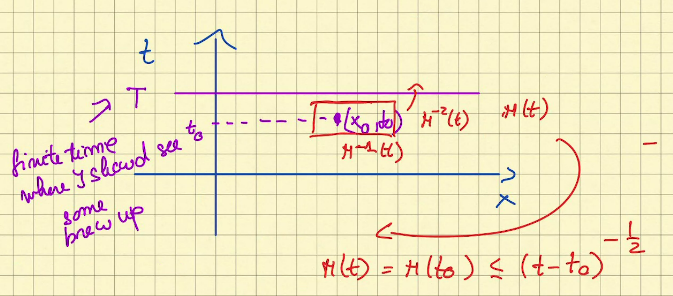 t
T
t₀
(x₀, t₀)
M⁻²(t)
M(t)
M⁻¹(t)
finite time
where I should see
some
brew up
x
M(t) = M(t₀) ≤ (t-t₀)^{-1/2}